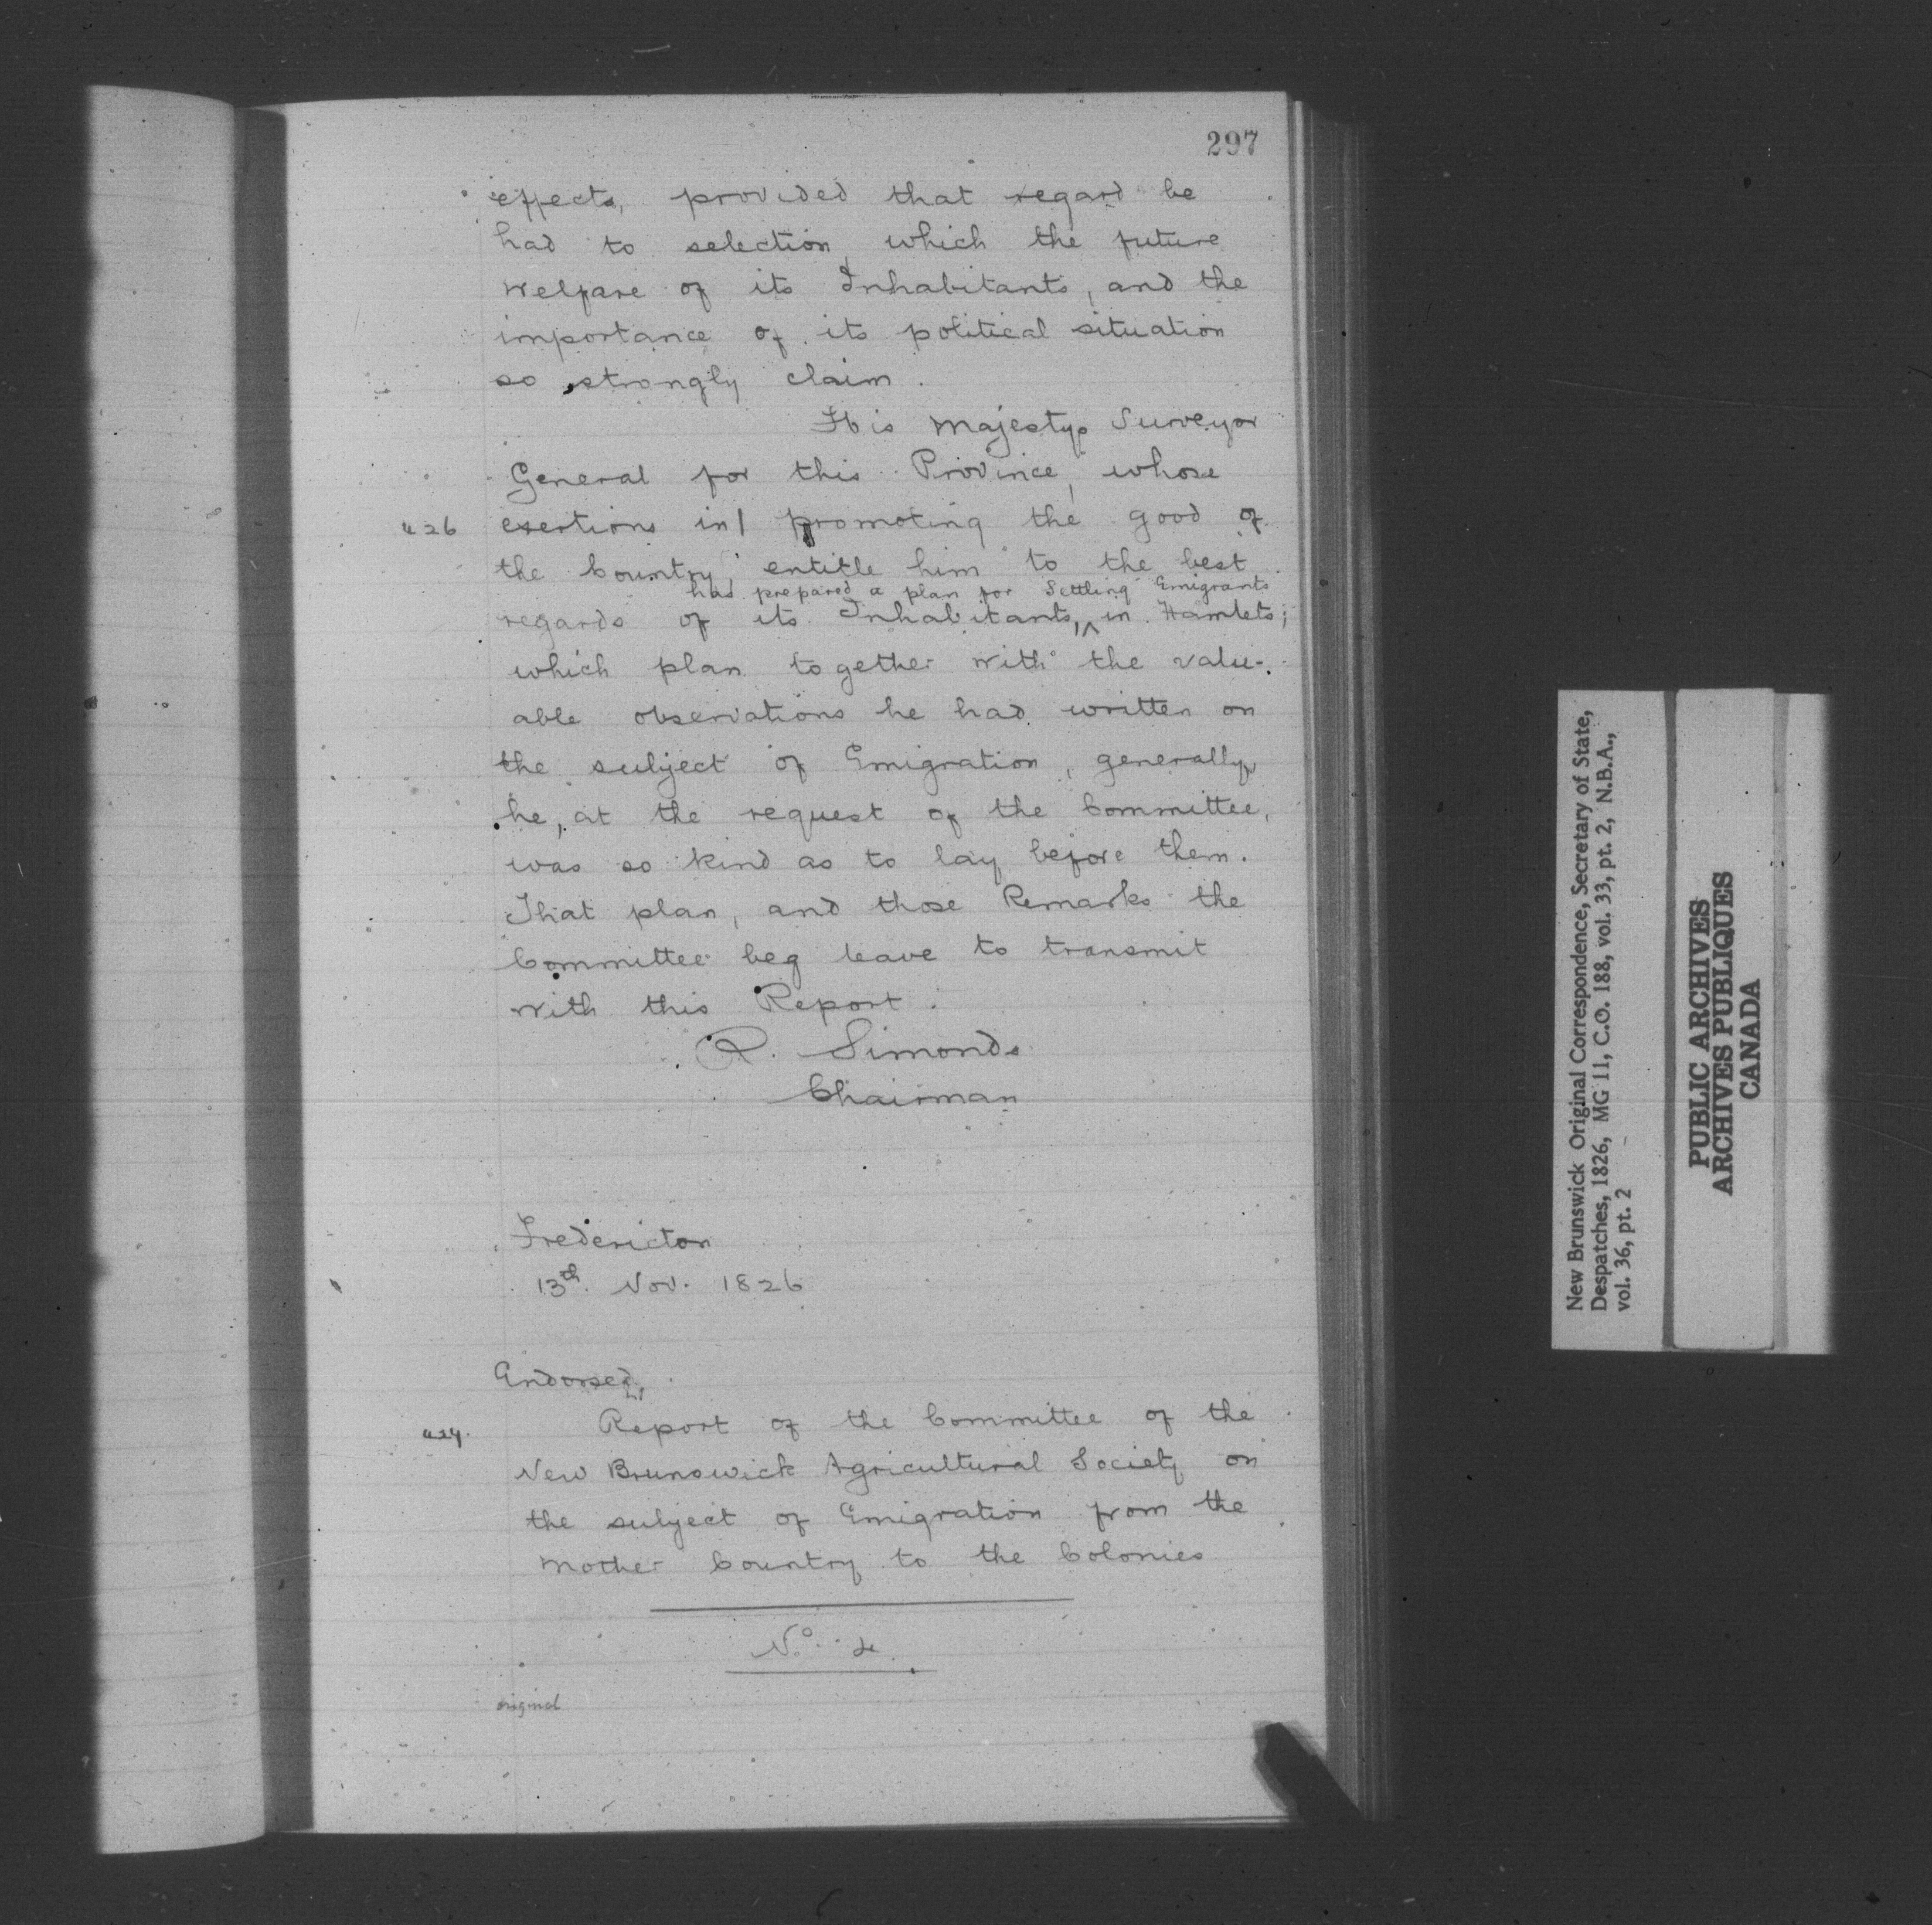 297
effects, provided that regard be
had to selection, which the future
welfare of its Inhabitants, and the
importance of its political situation
so strongly claim.
His Majestys Surveyor
General for this Province, whose
426 exertions in/ promoting the good of
the Country, entitle him to the best
has prepared a plan for Settling Emigrants
regards of its Inhabitants, ^ in Hamlets;
which plan together with the valu-
able observations he had written on
the subject of Emigration, generally,
he, at the request of the Committee,
was so kind as to lay before them.
That plan, and those Remarks the
Committee beg leave to transmit
with this Report.
R. Simonds
Chairman
Fredericton
13th. Nov. 1826
Endorsed,
Report of the Committee of the
New Brunswick Agricultural Society on
the subject of Emigration from the
Mother Country to the Colonies
No. 4.
original
New Brunswick Original Correspondence, Secretary of State,
Despatches, 1826, MG 11, C.O. 188, vol. 33, pt. 2, N.B.A.,
vol. 36, pt. 2
PUBLIC ARCHIVES
ARCHIVES PUBLIQUES
CANADA